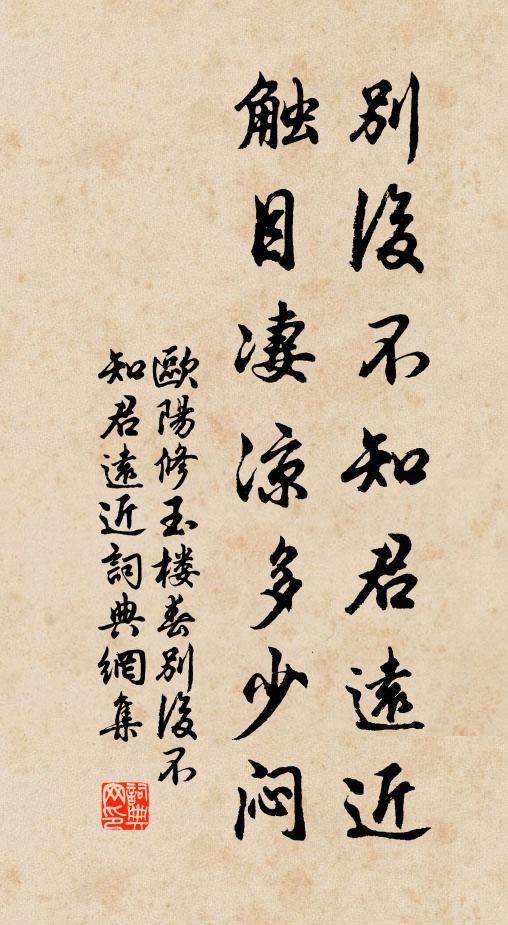 别後不知君遠近
触目凄凉多少闷
歐陽修玉楼春别後不
知君遠近詞典網集
詞典
网印